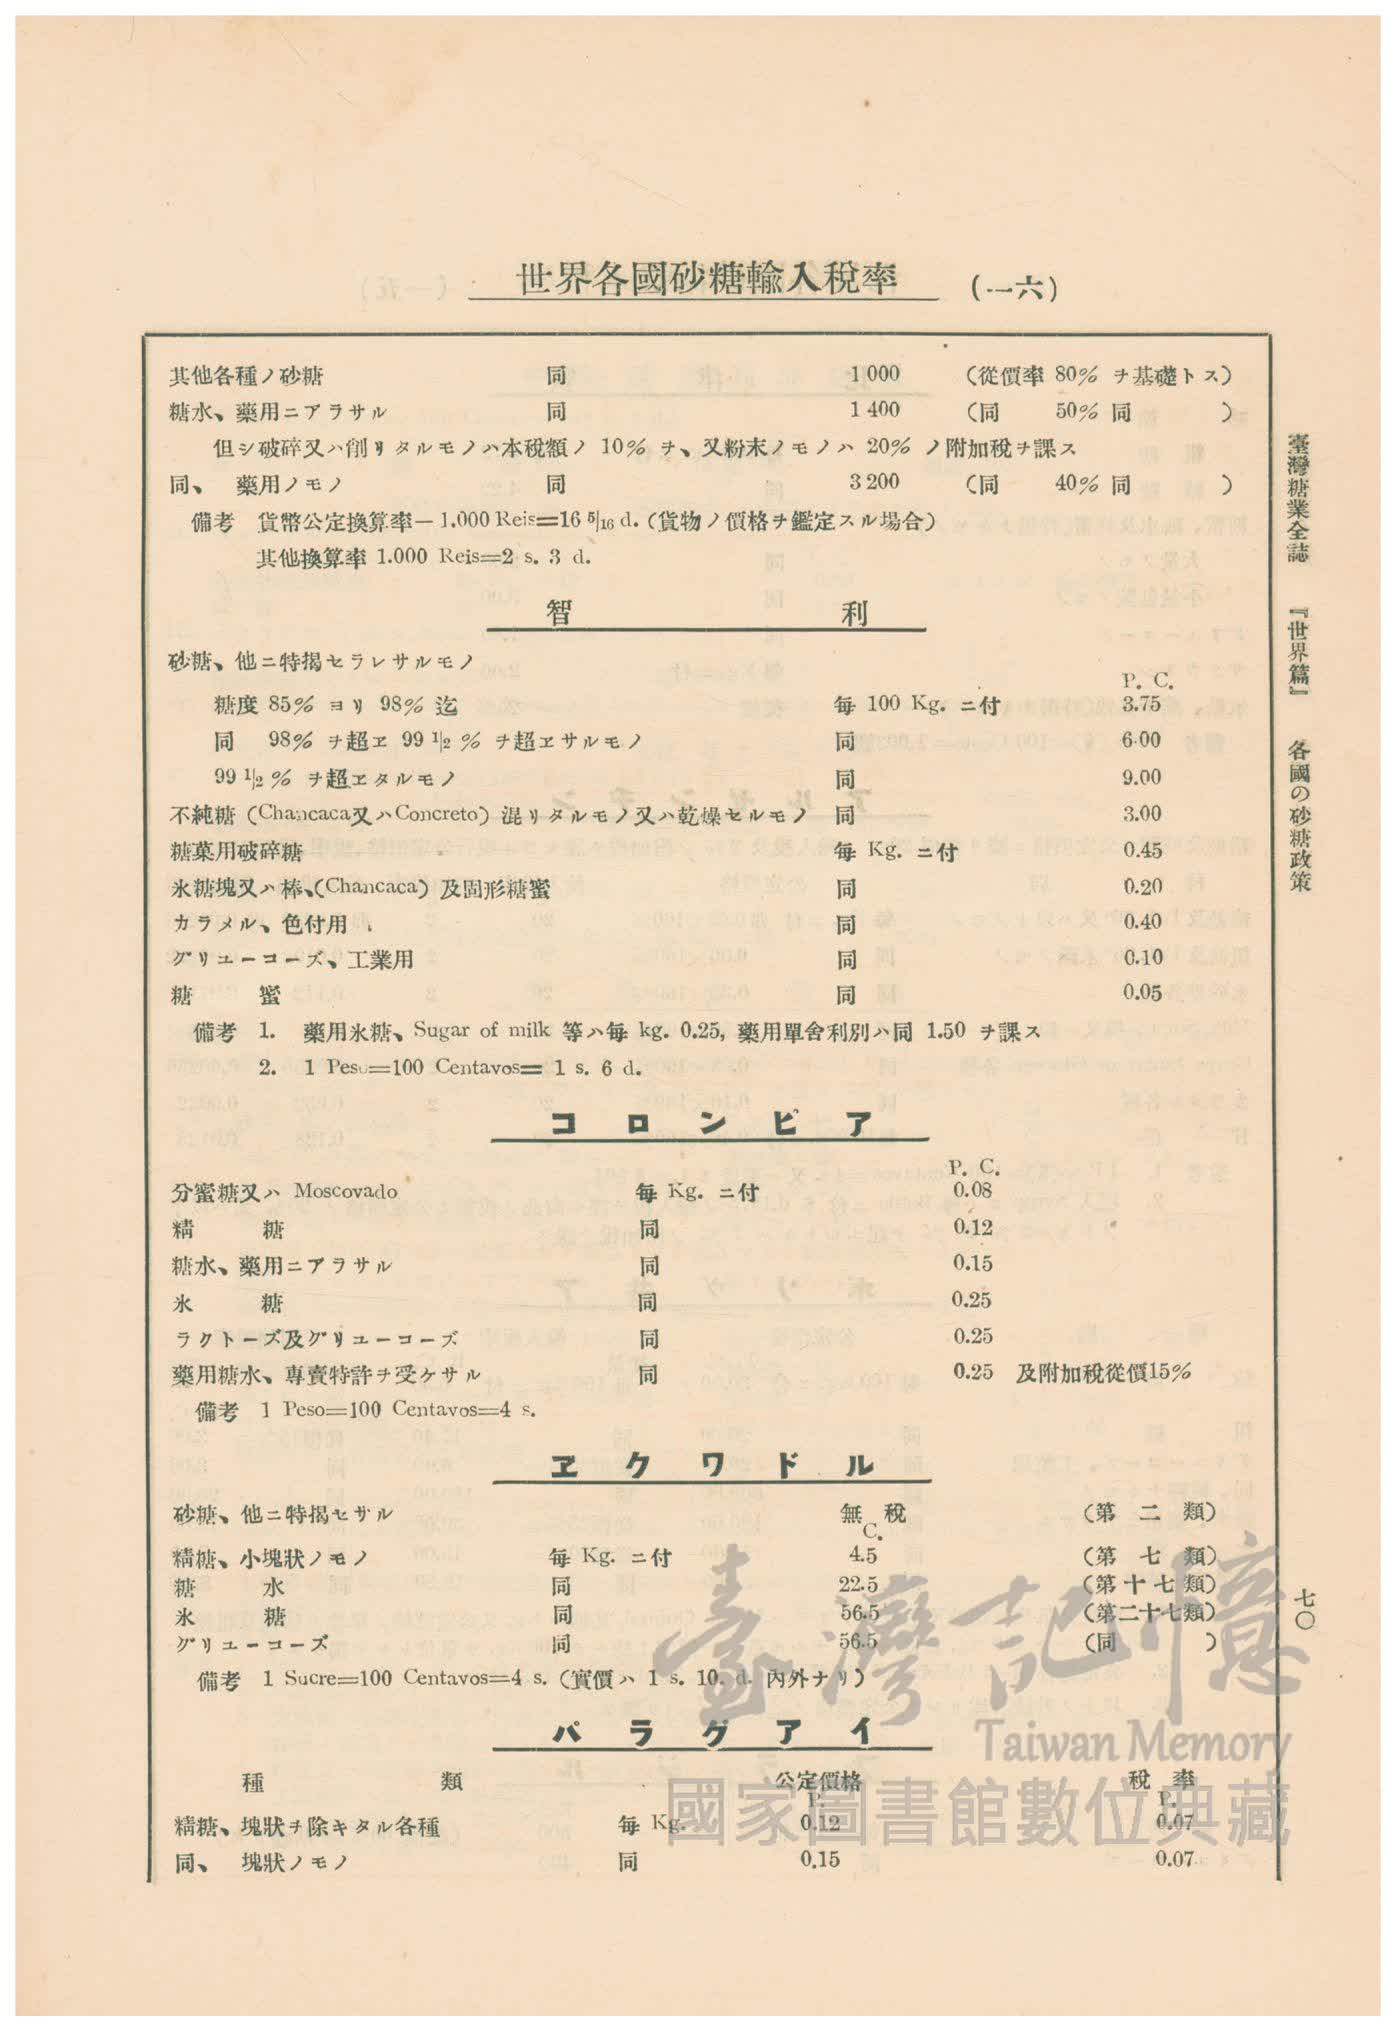 世界各國砂糖輸入稅率 (一六)
其他各種ノ砂糖 同 1 000 (從價率 80% ヲ基礎トス)
糖水、藥用ニアラサル 同 1 400 (同 50% 同 )
但シ破碎又ハ削リタルモノハ本稅額ノ 10% ヲ、又粉末ノモノハ 20% ノ附加稅ヲ課ス
同、 藥用ノモノ 同 3 200 (同 40% 同 )
備考 貨幣公定換算率— 1.000 Reis=16 5/16 d. (貨物ノ價格ヲ鑑定スル場合)
其他換算率 1.000 Reis=2 s. 3 d.
智 利
砂糖、他ニ特揭セラレサルモノ
P. C.
糖度 85% ヨリ 98% 迄 每 100 Kg. ニ付 3.75
同 98% ヲ超ヱ 99 1/2 % ヲ超ヱサルモノ 同 6.00
99 1/2 % ヲ超ヱタルモノ 同 9.00
不純糖 (Chancaca又ハConcreto) 混リタルモノ又ハ乾燥セルモノ 同 3.00
糖菓用破碎糖 每 Kg. ニ付 0.45
氷糖塊又ハ棒、(Chancaca) 及固形糖蜜 同 0.20
カラメル、色付用 同 0.40
グリユーコーズ、工業用 同 0.10
糖 蜜 同 0.05
備考 1. 藥用氷糖、Sugar of milk 等ハ每 kg. 0.25, 藥用單舍利別ハ同 1.50 ヲ課ス
2. 1 Peso=100 Centavos= 1 s. 6 d.
コロンビア
P. C.
分蜜糖又ハ Moscovado 每 Kg. ニ付 0.08
精 糖 同 0.12
糖水、藥用ニアラサル 同 0.15
氷 糖 同 0.25
ラクトーズ及グリユーコーズ 同 0.25
藥用糖水、專賣特許ヲ受ケサル 同 0.25 及附加稅從價15%
備考 1 Peso=100 Centavos=4 s.
ヱクワドル
砂糖、他ニ特揭セサル 無 稅 (第 二 類)
C.
精糖、小塊狀ノモノ 每 Kg. ニ付 4.5 (第 七 類)
糖 水 同 22.5 (第十七類)
氷 糖 同 56.5 (第二十七類)
グリユーコーズ 同 56.5 (同 )
備考 1 Sucre=100 Centavos=4 s. (實價ハ 1 s. 10. d. 內外ナリ)
パラグアイ
種 類 公定價格 稅 率
P. P.
精糖、塊狀ヲ除キタル各種 每 Kg. 0.12 0.07
同、 塊狀ノモノ 同 0.15 0.07
臺灣糖業全誌 『世界篇』 各國の砂糖政策
七〇
臺灣記憶
Taiwan Memory
國家圖書館數位典藏